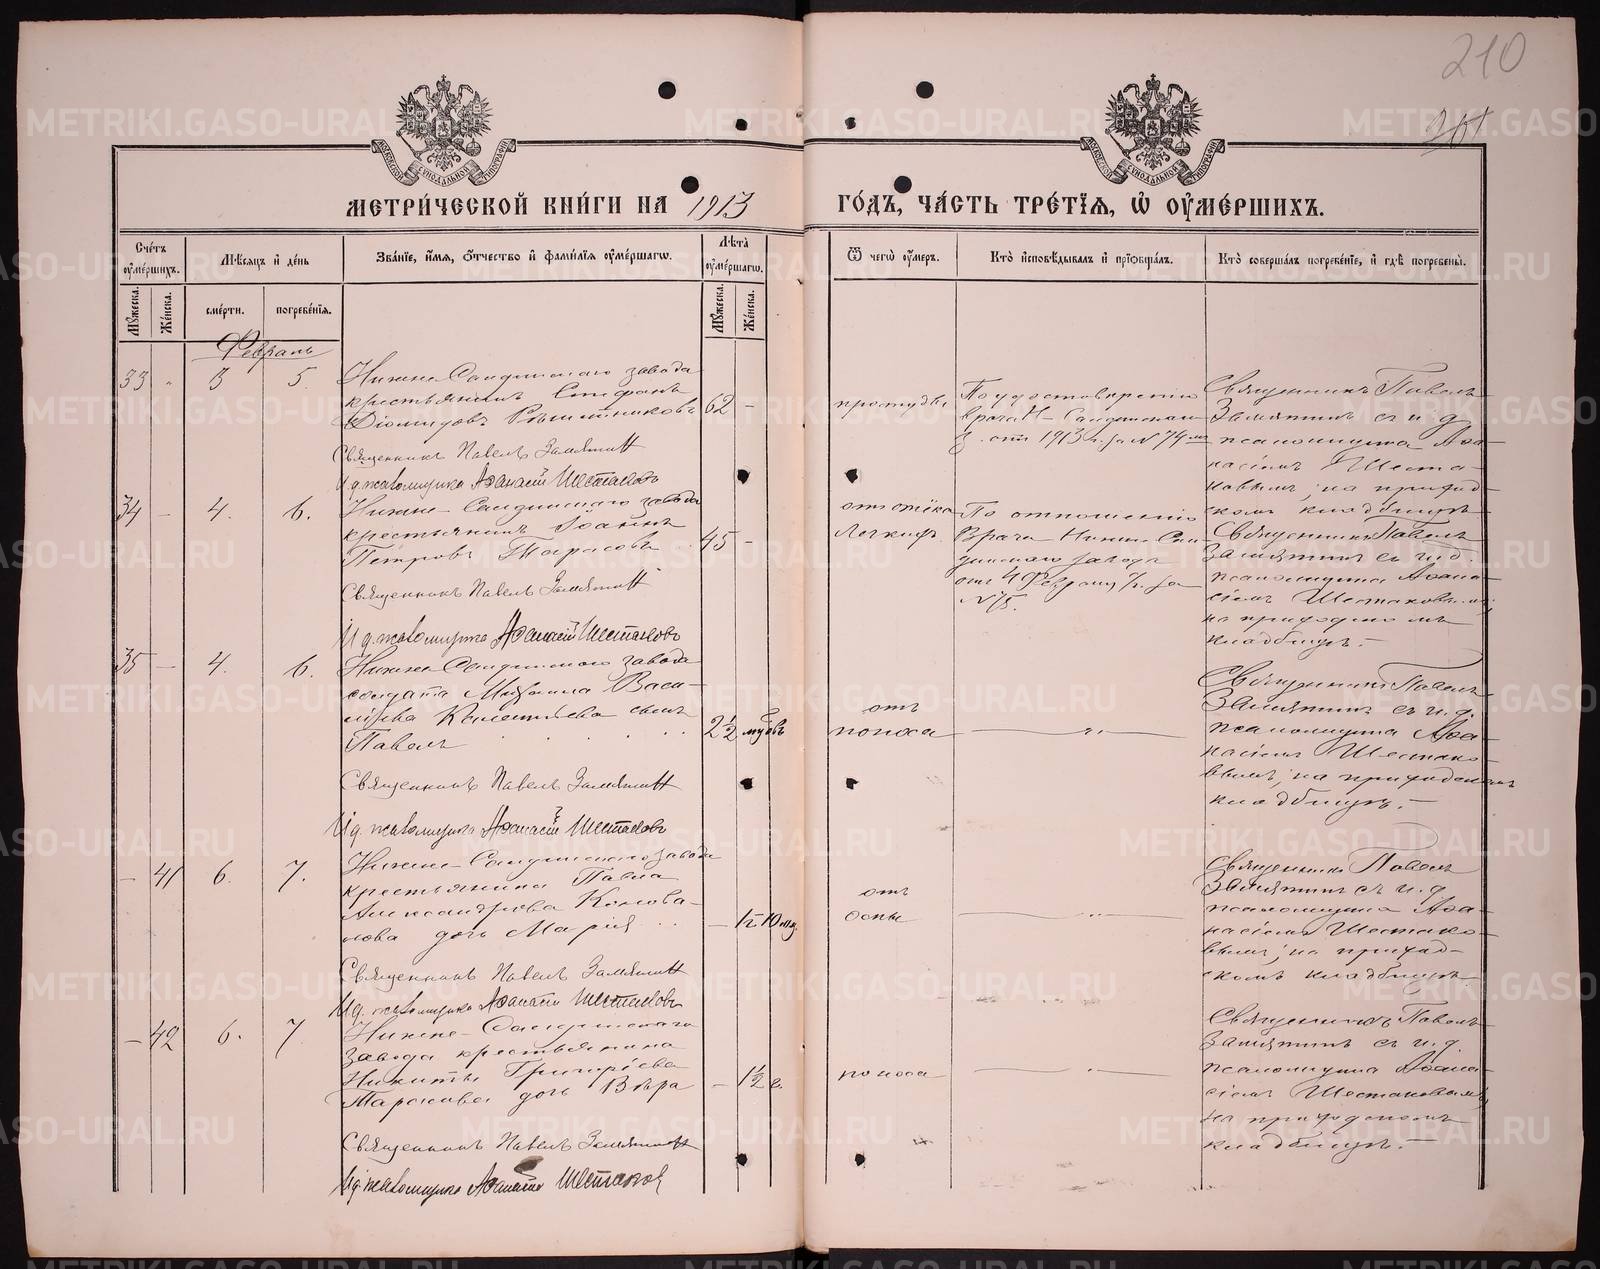 210
МЕТРИ́ЧЕСКОЙ КНИ́ГИ НА 1913 ГО́ДЪ, ЧА́СТЬ ТРЕ́ТІѦ, Ѡ ОУ҆МЕ́РШИХЪ.
Сче́тъ оу҆ме́ршихъ.
Мѣ́сяцъ и҆ де́нь
Зва́нїе, и҆́мѧ, ѻ҆́тчество и҆ фами́лїѧ оу҆ме́ршагѡ.
Лѣта̀ оу҆ме́ршагѡ.
Ѿ чегѡ̀ оу҆́меръ.
Кто̀ и҆сповѣ́дывалъ и҆ прїѡбща́лъ.
Кто̀ соверша́лъ погребе́нїе, и҆ гдѣ̀ погребены̀.
Мꙋ́жеска.
Же́нска.
сме́рти.
погребе́нїѧ.
Мꙋ́жеска.
Же́нска.
Февраль
33 3 5. Нижне-Салдинскаго завода
крестьянинъ Стефанъ
Діомидовъ Рѣшетниковъ 62 –
простуды
По удостоверенію
врача Н-Салдинскаго
з. отъ 1913 г. за N 74-мъ
Священникъ Павелъ
Замятинъ съ и. д.
псаломщика Аѳа-
насіемъ Шеста-
ковымъ; на приход-
скомъ кладбищѣ
Священникъ Павелъ Замятинъ
И д. псаломщика Аѳанасій Шестаковъ
34 – 4. 6. Нижне-Салдинскаго завода
крестьянинъ Іоаннъ
Петровъ Тарасовъ 45 –
отъ отёка
легкихъ
По отношенію
Врача Нижне-Сал-
динскаго завода
отъ 4 Февраля за
N 75.
Священникъ Павелъ
Замятинъ съ и. д.
псаломщика Аѳана-
сіемъ Шестаковымъ;
на приходскомъ
кладбищѣ. –
Священникъ Павелъ Замятинъ
И д. псаломщика Аѳанасій Шестаковъ
35 – 4. 6. Нижне-Салдинскаго завода
солдата Михаила Васи-
льева Клементьева сынъ
Павелъ 2½
отъ
поноса
Священникъ Павелъ
Замятинъ съ и. д.
псаломщика Аѳа-
насіемъ Шестако-
вымъ; на приходскомъ
кладбищѣ. –
Священникъ Павелъ Замятинъ
И д. псаломщика Аѳанасій Шестаковъ
– 41 6. 7. Нижне-Салдинскаго завода
крестьянина Павла
Александрова Конова-
лова дочь Марія
отъ
оспы
Священникъ Павелъ
Замятинъ съ и. д.
псаломщика Аѳа-
насіемъ Шестако-
вымъ; на приход-
скомъ кладбищѣ
Священникъ Павелъ Замятинъ
И д. псаломщика Аѳанасій Шестаковъ
– 42 6. 7 Нижне-Салдинскаго
завода крестьянина
Никиты Григорьева
дочь Вѣра – 1½ г.
поноса
Священникъ Павелъ
Замятинъ съ и. д.
псаломщика Аѳана-
сіемъ Шестаковымъ;
на приходскомъ
кладбищѣ. –
Священникъ Павелъ Замятинъ
И д. псаломщика Аѳанасій Шестаковъ
METRIKI.GASO-URAL.RU